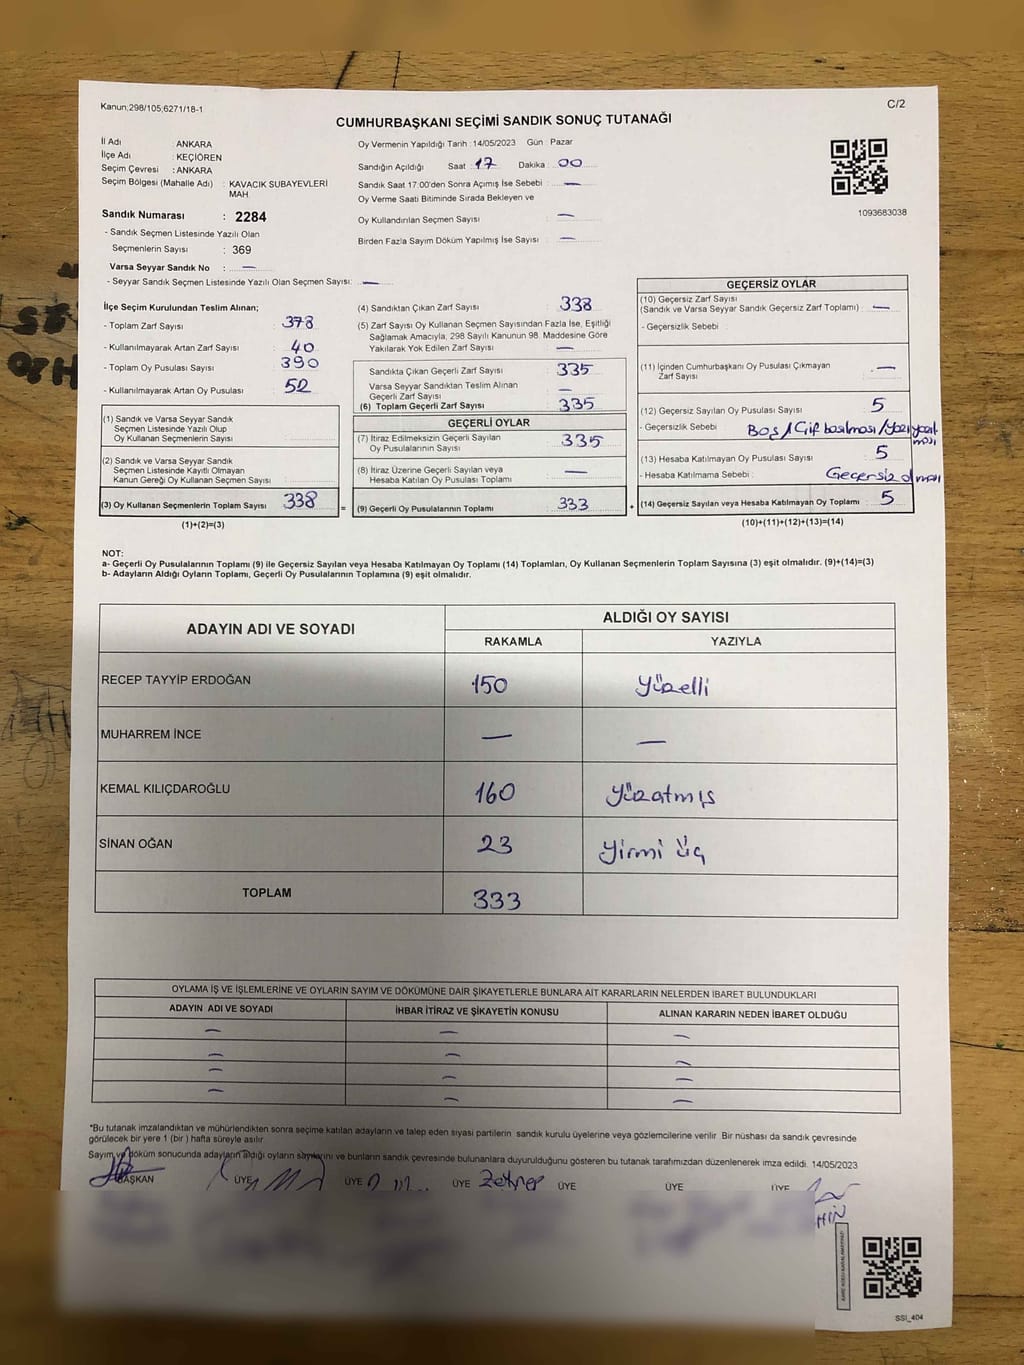 Kanun;298/105;6271/18-1
C/2
CUMHURBAŞKANI SEÇİMİ SANDIK SONUÇ TUTANAĞI
İl Adı : ANKARA
İlçe Adı : KEÇİÖREN
Seçim Çevresi : ANKARA
Seçim Bölgesi (Mahalle Adı) : KAVACIK SUBAYEVLERİ
MAH
Sandık Numarası : 2284
- Sandık Seçmen Listesinde Yazılı Olan
Seçmenlerin Sayısı : 369
Varsa Seyyar Sandık No : —
- Seyyar Sandık Seçmen Listesinde Yazılı Olan Seçmen Sayısı: —
Oy Vermenin Yapıldığı Tarih : 14/05/2023 Gün : Pazar
Sandığın Açıldığı Saat : 17 Dakika : 00
Sandık Saat 17:00'den Sonra Açımış İse Sebebi : —
Oy Verme Saati Bitiminde Sırada Bekleyen ve
Oy Kullandırılan Seçmen Sayısı : —
Birden Fazla Sayım Döküm Yapılmış İse Sayısı : —
1093683038
İlçe Seçim Kurulundan Teslim Alınan;
- Toplam Zarf Sayısı : 378
- Kullanılmayarak Artan Zarf Sayısı : 40
- Toplam Oy Pusulası Sayısı : 390
- Kullanılmayarak Artan Oy Pusulası : 52
(1) Sandık ve Varsa Seyyar Sandık
Seçmen Listesinde Yazılı Olup
Oy Kullanan Seçmenlerin Sayısı :
(2) Sandık ve Varsa Seyyar Sandık
Seçmen Listesinde Kayıtlı Olmayan
Kanun Gereği Oy Kullanan Seçmen Sayısı :
(3) Oy Kullanan Seçmenlerin Toplam Sayısı : 338
(1)+(2)=(3)
(4) Sandıktan Çıkan Zarf Sayısı : 338
(5) Zarf Sayısı Oy Kullanan Seçmen Sayısından Fazla İse, Eşitliği
Sağlamak Amacıyla, 298 Sayılı Kanunun 98. Maddesine Göre
Yakılarak Yok Edilen Zarf Sayısı : —
Sandıkta Çıkan Geçerli Zarf Sayısı : 335
Varsa Seyyar Sandıktan Teslim Alınan
Geçerli Zarf Sayısı : —
(6) Toplam Geçerli Zarf Sayısı : 335
GEÇERLİ OYLAR
(7) İtiraz Edilmeksizin Geçerli Sayılan
Oy Pusulalarının Sayısı : 335
(8) İtiraz Üzerine Geçerli Sayılan veya
Hesaba Katılan Oy Pusulası Toplamı : —
= (9) Geçerli Oy Pusulalarının Toplamı : 333 +
GEÇERSİZ OYLAR
(10) Geçersiz Zarf Sayısı
(Sandık ve Varsa Seyyar Sandık Geçersiz Zarf Toplamı) : —
- Geçersizlik Sebebi :
(11) İçinden Cumhurbaşkanı Oy Pusulası Çıkmayan
Zarf Sayısı : —
(12) Geçersiz Sayılan Oy Pusulası Sayısı : 5
- Geçersizlik Sebebi : Boş/Çif basılması/Yazı yazıl
ması
(13) Hesaba Katılmayan Oy Pusulası Sayısı : 5
- Hesaba Katılmama Sebebi : Geçersiz olması
(14) Geçersiz Sayılan veya Hesaba Katılmayan Oy Toplamı : 5
(10)+(11)+(12)+(13)=(14)
NOT:
a- Geçerli Oy Pusulalarının Toplamı (9) ile Geçersiz Sayılan veya Hesaba Katılmayan Oy Toplamı (14) Toplamları, Oy Kullanan Seçmenlerin Toplam Sayısına (3) eşit olmalıdır. (9)+(14)=(3)
b- Adayların Aldığı Oyların Toplamı, Geçerli Oy Pusulalarının Toplamına (9) eşit olmalıdır.
ADAYIN ADI VE SOYADI ALDIĞI OY SAYISI
RAKAMLA YAZIYLA
RECEP TAYYİP ERDOĞAN 150 Yüzelli
MUHARREM İNCE — —
KEMAL KILIÇDAROĞLU 160 Yüzatmış
SİNAN OĞAN 23 Yirmi üç
TOPLAM 333
OYLAMA İŞ VE İŞLEMLERİNE VE OYLARIN SAYIM VE DÖKÜMÜNE DAİR ŞİKAYETLERLE BUNLARA AİT KARARLARIN NELERDEN İBARET BULUNDUKLARI
ADAYIN ADI VE SOYADI İHBAR İTİRAZ VE ŞİKAYETİN KONUSU ALINAN KARARIN NEDEN İBARET OLDUĞU
— — —
— — —
— — —
— — —
*Bu tutanak imzalandıktan ve mühürlendikten sonra seçime katılan adayların ve talep eden siyasi partilerin sandık kurulu üyelerine veya gözlemcilerine verilir. Bir nüshası da sandık çevresinde
görülecek bir yere 1 (bir ) hafta süreyle asılır.
Sayım ve döküm sonucunda adayların aldığı oyların sayılarını ve bunların sandık çevresinde bulunanlara duyurulduğunu gösteren bu tutanak tarafımızdan düzenlenerek imza edildi. 14/05/2023
BAŞKAN ÜYE ÜYE ÜYE Zehner ÜYE ÜYE ÜYE
SSI_404